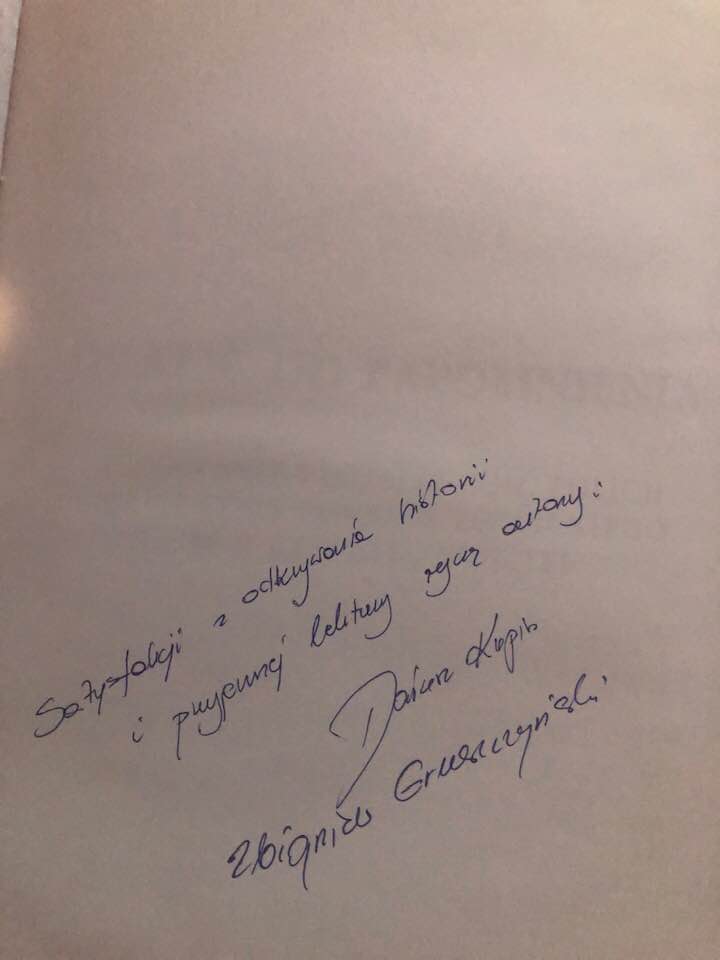 Satysfakcji z odkrywania historii
i przyjemnej lektury życzą autorzy:
Dariusz
Zbigniew Gruszczyński